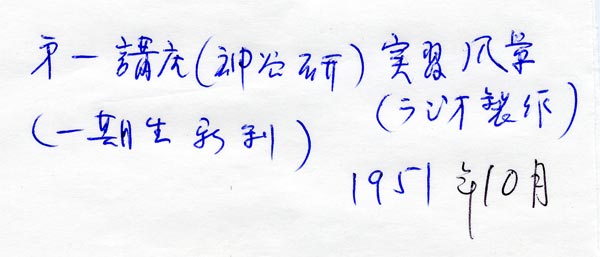 第一講座(神谷研)実習風景
(一期生 新刊)(ラジオ製作)
1951年10月